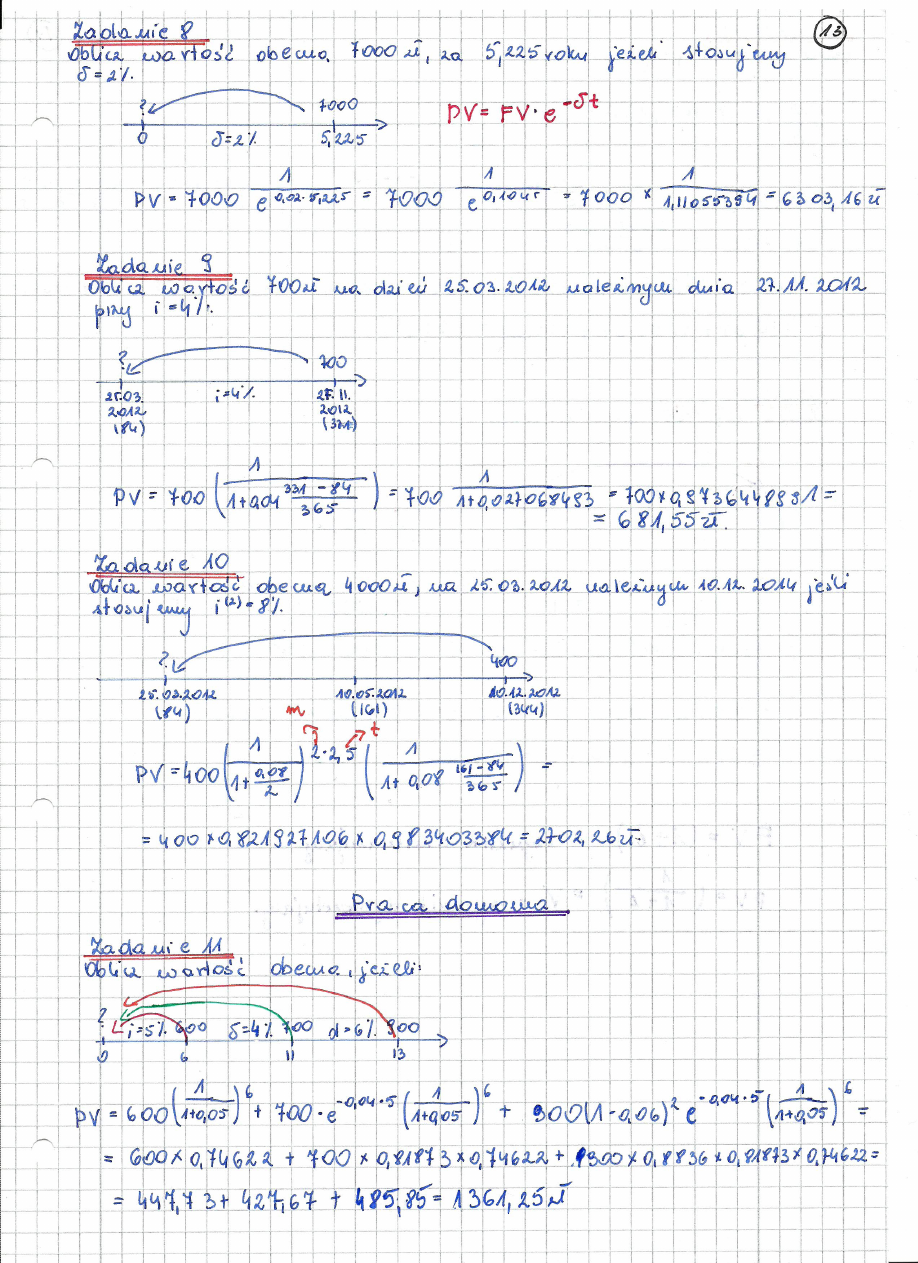 13
Zadanie 8
Oblicz wartość obecną 7000 zł, za 5,225 roku jeżeli stosujemy
δ = 2%.
? 7000
0 δ=2% 5,225
PV = FV · e^-δt
PV = 7000 1/e^0,02·5,225 = 7000 1/e^0,1045 = 7000 × 1/1,11055394 = 6303,16 zł
Zadanie 9
Oblicz wartość 700 zł na dzień 25.03.2012 należnych dnia 27.11.2012
przy i = 4%.
? 700
25.03. i=4% 27.11.
2012 2012
(84) (331)
PV = 700 (1/(1+0,04 (331-84)/365)) = 700 1/(1+0,027068493) = 700×0,9736448931 =
= 681,55 zł.
Zadanie 10
Oblicz wartość obecną 4000 zł, na 25.03.2012 należnych 10.12.2014 jeśli
stosujemy i^(2) = 8%.
? 400
25.03.2012 10.05.2012 10.12.2012
(84) (161) (344)
m t
PV = 400 (1/(1+0,08/2))^2·2,5 (1/(1+0,08 (161-84)/365)) =
= 400 × 0,821927106 × 0,983403384 = 2702,26 zł.
Praca domowa
Zadanie 11
Oblicz wartość obecną, jeżeli:
? i=5% 600 δ=4% 700 d=6% 900
0 6 11 13
PV = 600 (1/(1+0,05))^6 + 700 · e^-0,04·5 (1/(1+0,05))^6 + 900 (1-0,06)^2 e^-0,04·5 (1/(1+0,05))^6 =
= 600 × 0,74622 + 700 × 0,81873 × 0,74622 + 900 × 0,8836 × 0,81873 × 0,74622 =
= 447,73 + 427,67 + 485,85 = 1361,25 zł